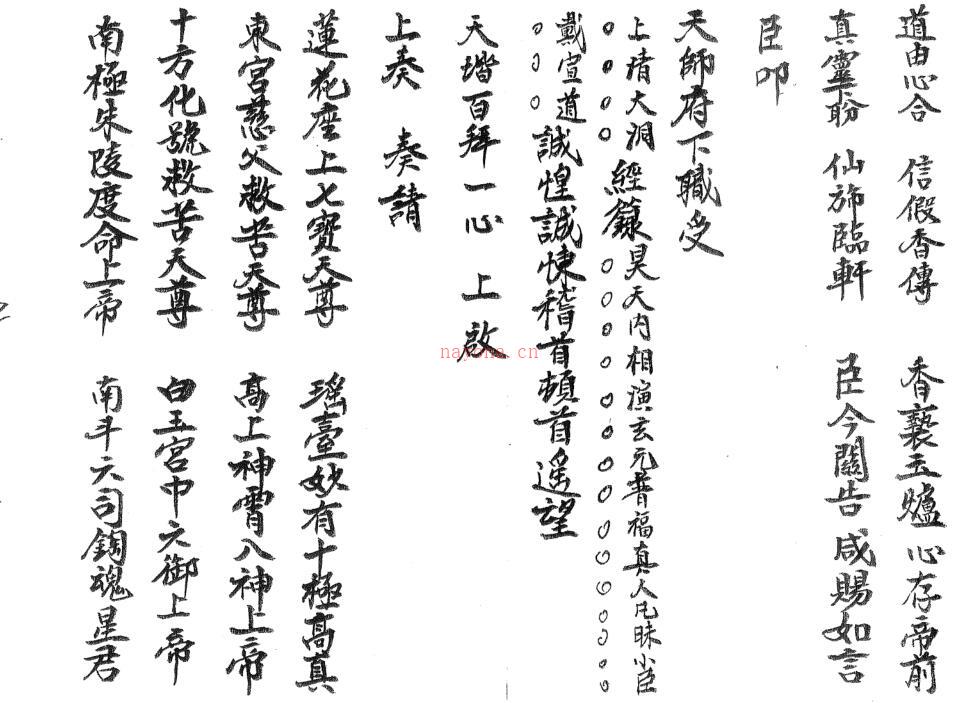 道由心合 信假香傳 香爇玉爐 心存帝前
真靈盼 仙斾臨軒 臣今關告 咸賜如言
臣叩
天師府下職受
上清大洞經籙昊天內相演玄元普福真人凡昧小臣
戴宣道誠惶誠悚稽首頓首遥望
天堦百拜一心 上啟
上奏 奏請
蓮花座上七寶天尊 瑶臺妙有十極高真
東宮慈父救苦天尊 高上神霄八神上帝
十方化號救苦天尊 白玉宮中六御上帝
南極朱陵度命上帝 南斗六司鍊魂星君
nayona.cn